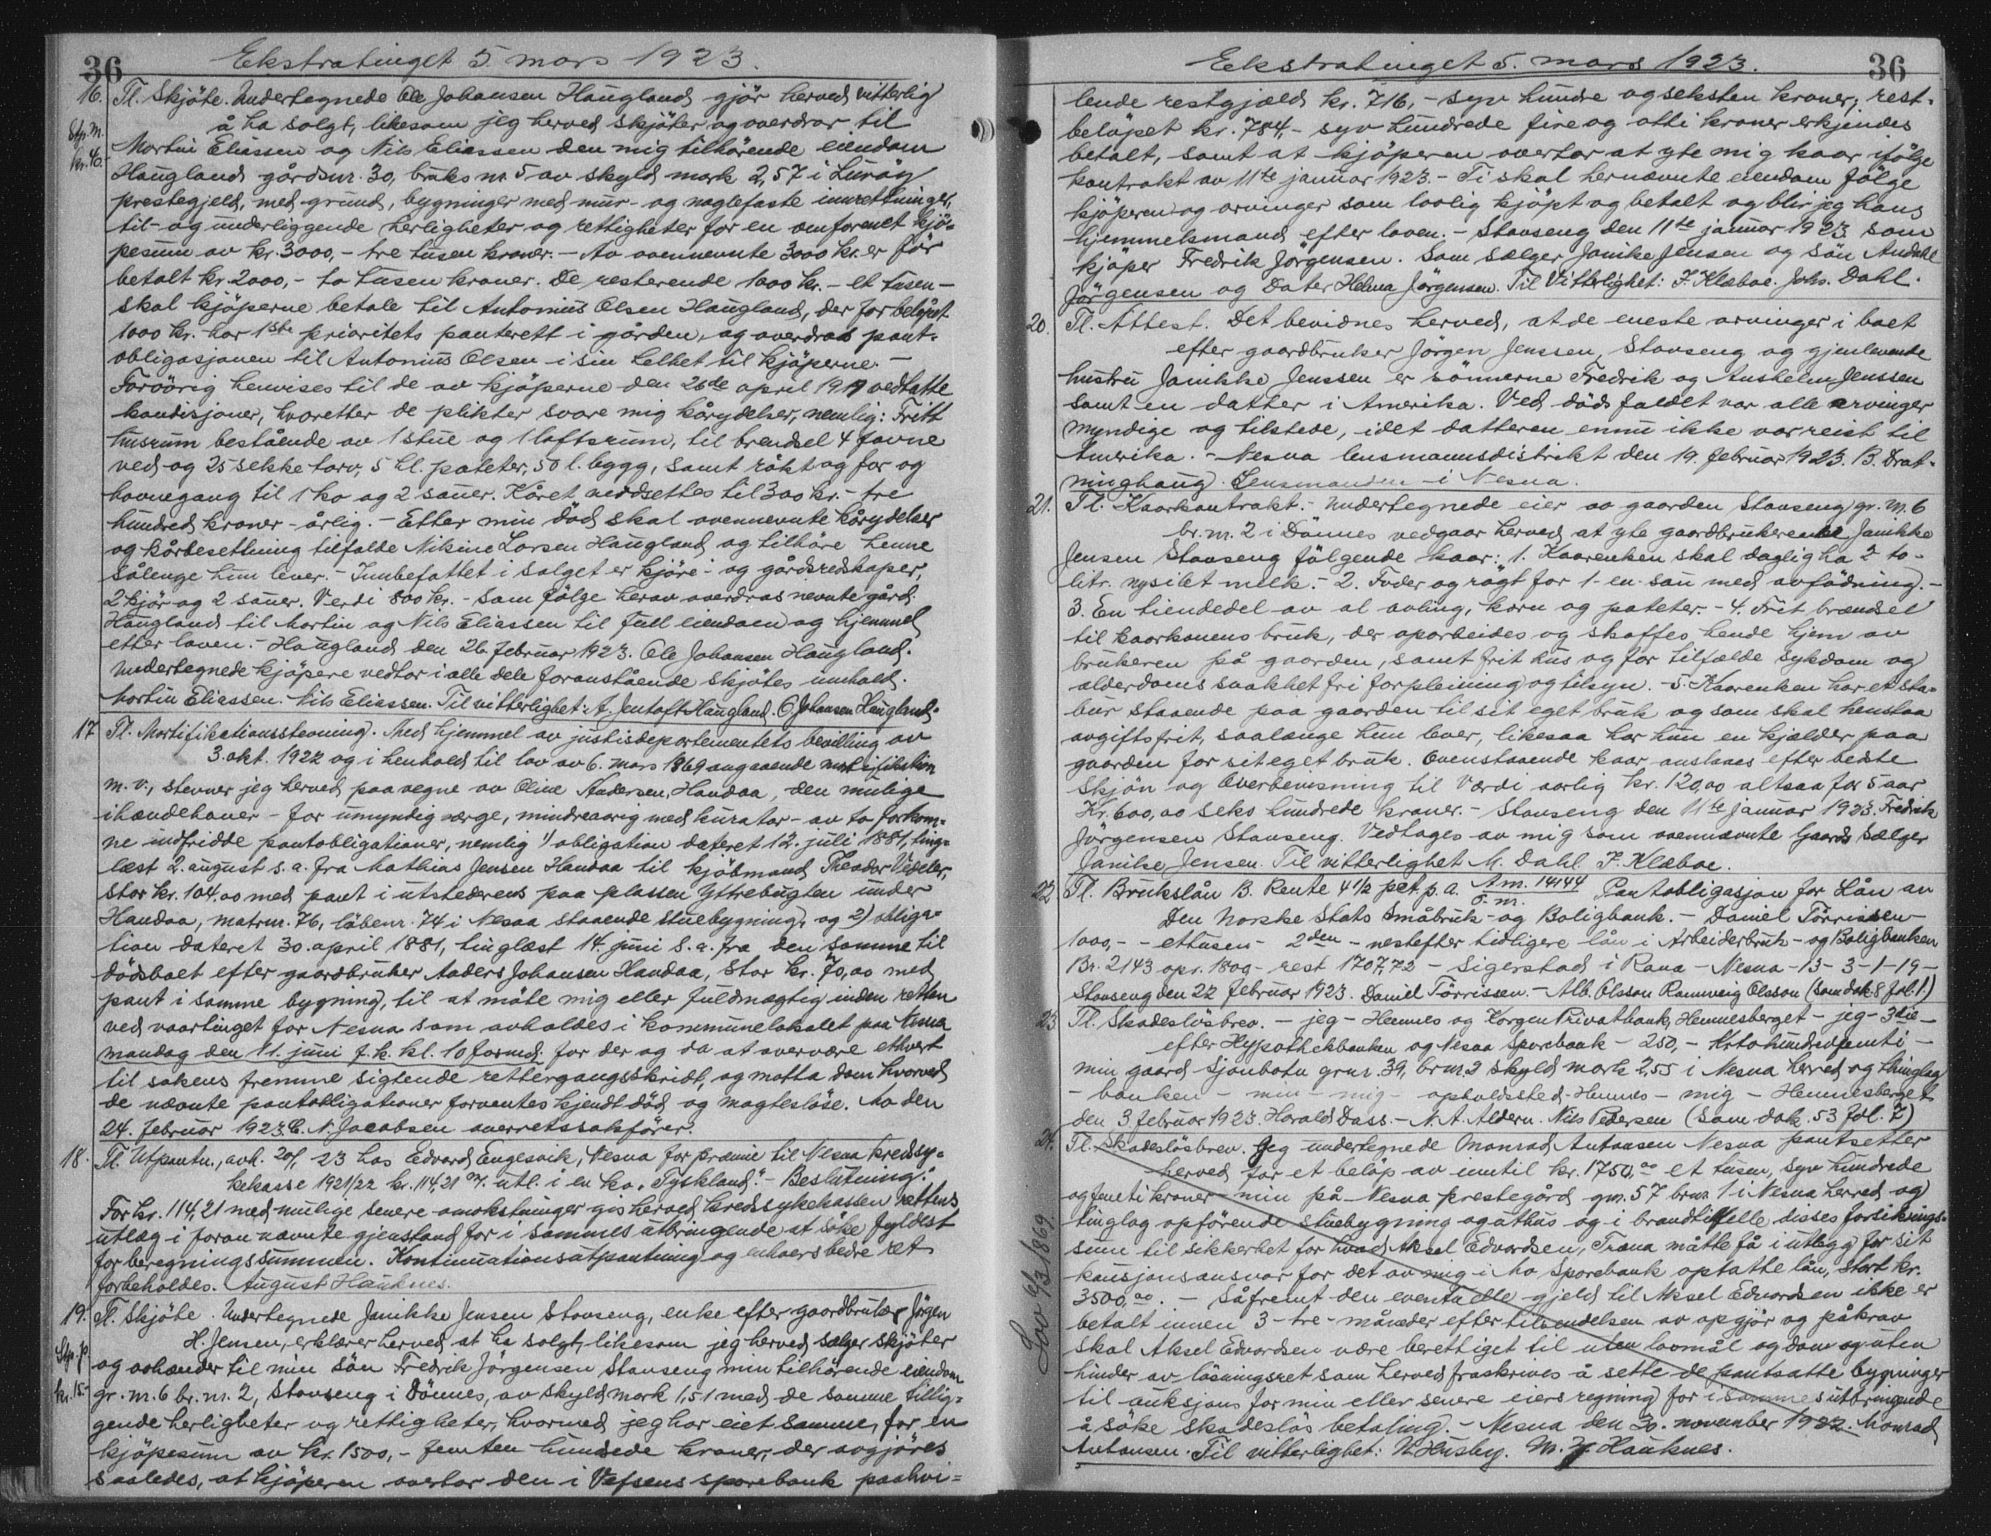 36
Ekstratinget 5. mars 1923.
16. Tl. Skjöte. Undertegnede Ole Johansen Haugland gjör herved vitterlig
å ha solgt, likesom jeg herved skjöter og overdrar til
Stp. M.
kr. 46.-
Martin Eliassen og Nils Eliassen den mig tilhörende eiendom
Haugland gårdsnr. 30, bruksnr 5 av skyld mark 2,57 i Luröy
prestegjeld, med grund, bygninger med mur- og naglefaste innretninger,
til- og underliggende herligheter og rettigheter for en omforenet kjö-
pesum av kr. 3000,- tre tusen kroner. - Av ovennevnte 3000 kr. er för
betalt kr. 2000,- to tusen kroner. De resterende 1000 kr. - et tusen -
skal kjöperne betale til Antonius Olsen Haugland, der for belöpet
1000 kr. har 1ste prioritets panterett i gården, og overdras pant-
obligasjonen til Antonius Olsen i sin helhet til kjöperne. -
Forövrig henvises til de av kjöperne den 26de april 1917 vedtatte
kondisjoner, hvoretter de plikter svare mig kårydelser, nemlig: Fritt
husrum bestående av 1 stue og 1 loftsrum, til brendsel 4 favne
ved og 25 sekke torv, 5 hl. poteter, 50 l. bygg, samt rökt og for og
havnegang til 1 ko og 2 sauer. Kåret verdsettes til 300 kr. - tre
hundred kroner - årlig. - Etter min död skal ovennevnte kårydelser
og kårbesetning tilfalde Nikine Larsen Haugland og tilhöre henne
sålenge hun lever. - Innbefattet i salget er kjöre- og gårdsredskaper,
2 kjör og 2 sauer. Verdi 800 kr. - Som fölge herav overdras nevnte gård
Haugland til Martin og Nils Eliassen til full eiendom og hjemmel
etter loven. - Haugland den 26. februar 1923. Ole Johansen Haugland.
Undertegnede kjöpere vedtar i alle dele foranstående skjötes innhold.
Martin Eliassen. Nils Eliassen. Til vitterlighet: A. Jentoft Haugland. O Johansen Haugland.
17. Tl. Mortifikationsstevning. Med hjemmel av justisdepartementets bevilling av
3. okt. 1922 og i henhold til lov av 6. mars 1869 angaaende mortifikation
m. v., stevner jeg herved paa vegne av Oline Andersen, Handaa, den mulige
ihændehaver - for umyndig verge, mindreaarig med kurator - av to forkom-
ne indfridde pantobligationer, nemlig 1) obligation dateret 12. juli 1881, ting-
læst 2. august s. a. fra Mathias Jensen Handaa til kjöbmand Theodor Vedeler,
stor kr. 104.00 med pant i utstederens paa plassen Yttrebugten under
Handaa, matrnr. 76, löbenr. 74 i Nesna staaende stuebygning, og 2) obliga-
tion dateret 30. april 1881, tinglæst 14. juni s. a. fra den samme til
dödsboet efter gaardbruker Anders Johansen Handaa, stor kr. 70,00 med
pant i samme bygning, til at möte mig eller fuldmægtig inden retten
ved vaartinget for Nesna som avholdes i kommunelokalet paa Nesna
mandag den 11. juni f. k. kl. 10 formd. for der og da at overvære ethvert
til sakens fremme sigtende rettergangsskridt, og motta dom hvorved
de nævnte pantobligationer forventes kjendt död og magteslöse. Mo den
24. februar 1923. C. N. Jacobsen overretssakförer.
18. Tl. Utpantn., avh. 20/1 23 hos Edvard Engesvik, Nesna for præmie til Nesna kredssy-
kekasse 1921/22 kr. 114,21 utl. i en ko "Tyskland". - Beslutning:
For kr. 114,21 med mulige senere omkostninger gis herved kredssykekassen rettens
utlæg i foran nævnte gjenstand for i sammes utbringende at söke fyldest
for beregningssummen. Kontinuationsutpantning og enhvers bedre ret
forbeholdes. August Hauknes.
19. Tl. Skjöte. Undertegnede Janikke Jensen Stavseng, enke efter gaardbruker Jörgen
H. Jensen, erklærer herved, at ha solgt, likesom jeg herved sælger skjöter
Stp. p.
kr. 15.-
og avhender til min sön Fredrik Jörgensen Stavseng min tilhörende eiendom
gr. nr. 6 br. nr. 2, Stavseng i Dönnes, av skyld mark 1,51 med de samme tillig-
gende herligheter og rettigheter, hvormed jeg har eiet samme, for en
kjöpesum av kr. 1500,- femten hundrede kroner, der avgjöres
saaledes, at kjöperen overtar den i Vefsens sparebank paahvi-
Ekstratinget 5. mars 1923.
36
lende restgjæld kr. 716,- syv hundre og seksten kroner, rest-
belöpet kr. 784,- syv hundrede fire og otti kroner erkjendes
betalt, samt at kjöperen overtar at yte mig kaar ifölge
kontrakt av 11te januar 1923. - Ti skal hernævnte eiendom fölge
kjöperen og arvinger som lovlig kjöpt og betalt og blir jeg hans
hjemmelsmand efter loven. - Stavseng den 11te januar 1923 som
kjöper Fredrik Jörgensen. Som sælger Janike Jensen og sön
Jörgensen og Dater Helma Jörgensen. Til Vitterlighet: F. Klæboe. Johs. Dahl.
20. Tl. Attest. Det bevidnes herved, at de eneste arvinger i boet
efter gaardbruker Jörgen Jenssen, Stavseng og gjenlevende
hustru Janikke Jenssen er sönnerne Fredrik og Anshelm Jenssen
samt en datter i Amerika. Ved dödsfaldet var alle arvinger
myndige og tilstede, idet datteren ennu ikke var reist til
Amerika. - Nesna lensmannsdistrikt den 19. februar 1923. B. Drot-
ninghaug. Lensmanden i Nesna.
21. Tl. Kaarkontrakt. - Undertegnede eier av gaarden Stavseng gr. nr. 6
br. nr. 2 i Dönnes vedgaar herved at yte gaardbrukerenke Janikke
Jensen Stavseng fölgende kaar: 1. Kaarenken skal daglig ha 2 to-
litr. nysilet melk. - 2. Foder og rögt for 1 - en sau med avfödning. -
3. En tiendedel av al avling, korn og poteter. - 4. Frit brændsel
til kaarkonens bruk, der oparbeides og skaffes hende hjem av
brukeren på gaarden, samt frit hus og for tilfælde sykdom og
alderdoms svakhet fri forpleining og tilsyn. - 5. Kaarenken har et sta-
bur staaende paa gaarden til sit eget bruk og som skal henstaa
avgiftsfrit, saalænge hun lever, likesaa har hun en kjælder paa
gaarden for sit eget bruk. Ovenstaaende kaar anslaaes efter bedste
skjön og Overbevisning til Værdi aarlig kr. 120,00 altsaa for 5 aar
Kr. 600,00 seks hundrede kroner. - Stavseng den 11te januar 1923. Fredrik
Jörgensen Stavseng. Vedtages av mig som ovennævnte Gaards Sælger
Janike Jensen. Til vitterlighet M. Dahl. F. Klæboe.
22. Tl. Brukslån B. Rente 4 1/2 pct. p. a. Am. 14144 Pantobligasjon for Lån av
Den Norske Stats Småbruk- og Boligbank. - Daniel Törrissen -
1000,- - ettusen - 2den - nestefter tidligere lån i Arbeiderbruk- og Boligbanken
Br. 2143 opr. 1800 - rest 1707,72 - Sigerstad i Rana - Nesna - 13 - 3 - 1 - 19 -
Stavseng den 22 februar 1923. Daniel Törrissen. - Alb. Olsson Rannveig Olsson (som dok. 8 fol. 1)
23. Tl. Skadeslösbrev. - jeg - Hemnes og Korgen Privatbank, Hemnesberget - jeg - 3die -
efter Hypothekbanken og Nesna Sparebank - 250,- Kr. tohundredfemti -
min gaard Sjonbotn grnr. 39, brnr. 2 skyld mark 2,55 i Nesna Herred og thinglag
- banken - min - mig - opholdssted - Hemnes - mig - Hemnesberget
den 3 februar 1923. Harald Dass. - N. A. Aldern. Nils Pedersen (som dok. 53 fol. 7)
24. Tl. Skadeslösbrev. Jeg undertegnede Monrad Antonsen Nesna pantsetter
herved for et belöp av inntil kr. 1750,00 et tusen, syv hundrede
og femti kroner min på Nesna prestegård gnr. 57 brnr. 1 i Nesna herred og
tinglag opförende stuebygning og uthus og i brandtilfelle disses forsikrings-
sum til sikkerhet for hvad Aksel Edvardsen, Træna måtte få i utlegg for sit
kausjonsansvar for det av mig i Mo Sparebank optatte lån, stort kr.
3500,00. - Såfremt den eventuelle gjeld til Aksel Edvardsen ikke er
betalt innen 3 - tre - måneder efter tilsendelsen av opgjör og påkrav
skal Aksel Edvardsen være berettiget til uten lovmål og dom og uten
hinder av lösningsret som herved fraskrives å sette de pantsatte bygninger
til auksjons for min eller senere eiers regning for i sammes utbringende
å söke skadeslös betaling. - Nesna den 30. november 1922. Monrad
Antonsen. Til vitterlighet: N Husby. M. Hauknes.
Lov 6/3 1869.